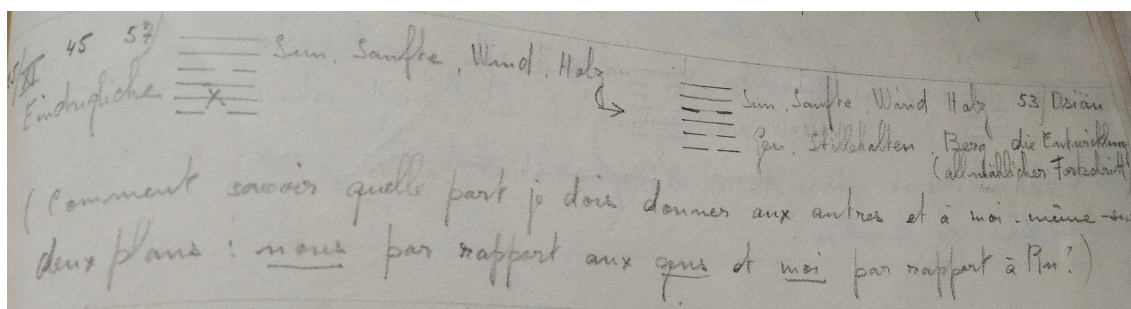 5/XI 45 57 Sun, Sanfte, Wind, Holz
Eindrigliche
Sun, Sanfte, Wind Holz 53/Dsiän
Gen, Stillehalten, Berg die Entwicklung
(allmählicher Fortschritt)
(Comment savoir quelle part je dois donner aux autres et à moi-même-su
deux plans : nous par rapport aux gens et moi par rapport à Rn?)